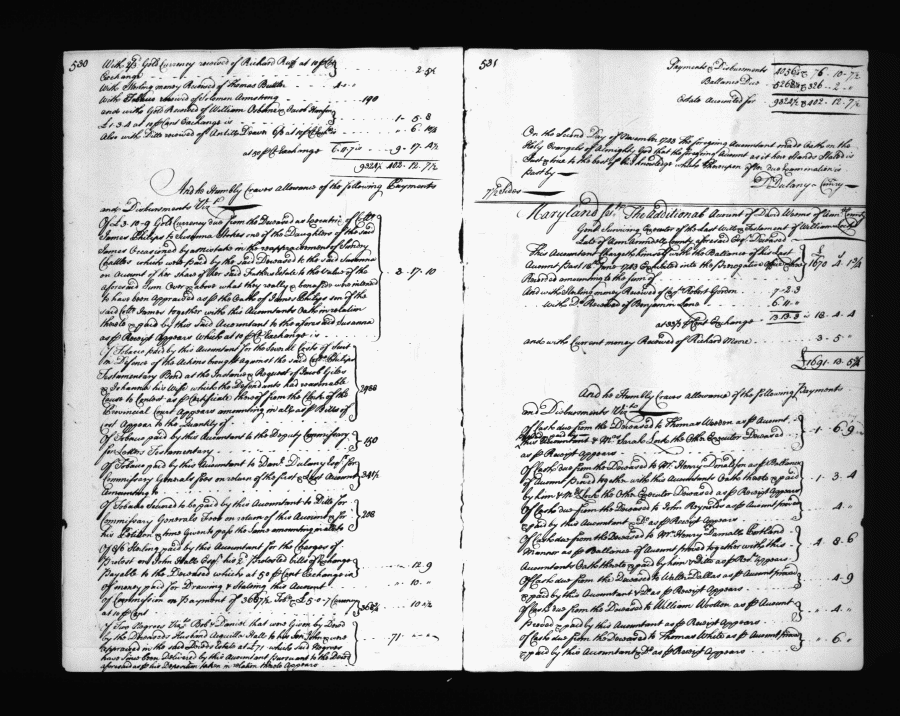 530
With 2/3 Gold Currency received of Richard Ruff at 10 p Ct
Exchange - - - - 2 . 5 1/2
With Sterling money Received of Thomas Brittle . . 4 . .
With Tobacco received of Solomon Armstrong . . . 190
and with Gold Received of William Osborne & Jacob Hanson
£1.3.4 at 10 p Cent Exchange is . . . 1 . 5 . 8
Also with Ditto received of Antill Deaver 6/ at 10 p Ct Exc. is . . . 6 . 
at 50 p Ct Exchange 6.11.7 is . . 9 . 17 . 4 1/2
9324 1/2 402 . 12 . 7 1/2
And to Humbly Craves allowance of the following Payments
and Disbursments Viz.
Of £3.10.9 Gold Currency due from the Deceased as Executrix of Capt
James Philips to Susanna Stokes one of the Daughters of the said
James Occasioned by a mistake in the reappraisement of Sundry
Chattles which were paid by the said Deceased to the said Susanna
on Account of her share of her said Fathers Estate to the Value of the
aforesaid Sum Over & above what they really & bona fide were intended
to have been Appraised as p the Oaths of James Philips son of the
said Capt James together with this Accountants Oath in relation
thereto & paid by this said Accountant to the aforesaid Susanna
as p Receipt Appears Which at 10 p Ct Exchange is . . . 3 . 17 . 10
Of Tobacco paid by this Accountant for the several Costs of Suit
in Defence of the Actions brought against the said Capt Philips
Testamentary Bond at the Instance & Request of Jacob Giles
& Johanna his Wife which the Defendants had reasonable
Cause to Contest as p Certificate thereof from the Clerk of the
Provincial Court Appears amounting in all as p Bills of
Cost Appear to the Quantity of . . . 2988
Of Tobacco paid by this Accountant to the Deputy Commissary
for Letters Testamentary . . . 130
Of Tobacco paid by this Accountant to Danl. Dulany Esqr for
Commissary Generals fees on return of the first & Last Account
Amounting to . . . 341 1/2
Of Tobacco Secured to be paid by this Accountant to Ditto for
Commissary Generals Fees on return of this Account & for
his Petition & time Given to pass the same amounting in all to . . . 208
Of 8/6 Sterling paid by this Accountant for the Charges of
Protest on John Hall Esqr his 2d Protested bills of Exchange
Payable to the Deceased which at 50 p Cent Exchange is . . . 12 . 9
Of money paid for Drawing & Stating this Account . . . 10 . .
Of Commission on Payment of 3667 1/2 Tobo & £5.0.7 Currency
at 10 p Cent . . . 366 3/4 . . 10 . 0 1/2
Of Two Negroes Vizt Bob & Daniel that was Given by Deed
by the Deceaseds Husband Aquilla Hall to his Son John & was
Appraised in the said Deceds Estate at £71 which said Negroes
have since been Delivered by this Accountant Pursuant to the Deed
aforesaid as p his Deposition taken in relation thereto Appears . . . 71 . .
531
Payments & Disbursments 4036 1/4 & 76 . 10 . 7 1/2
Ballance Due 5288 1/4 & 326 . . 2 . .
Estate Accounted for 9324 1/2 & 402 . 12 . 7 1/2
On the Second Day of November 1743 The foregoing Accountant made Oath on the
Holy Evangels of Almighty God that the foregoing Account as it here Stands Stated is
Just & true to the best of his knowledge which thereupon after due Examination is
Past by
D. Dulany Comry
7 1/2 Sides
Maryland ss. The Additional Account of David Weems of Ann Arl County
Gent Surviving Executor of the Last Will & Testament of William Lock
Late of Ann Arundel County aforesaid Esqr Deceased
This Accountant Chargeth himself with the Ballance of his Last
Account Past 16th June 1743 Exhibited into the Prerogative Office & there
Record amounting to the Sum of . . . £1670 . 4 . 1 3/4
And with Sterling money Received of Capt Robert Gordon . . 7 . 2 . 3
with Do Received of Benjamin Lane . . . 6 . 11 . .
at 33 1/3 p Cent Exchange 13.13.3 is 18 . 4 . 4
and with Current money Received of Richard Moore . . . 3 . 5 .
£1691 . 13 . 5 3/4
And he Humbly Craves allowance of the following Payments
and Disbursments Viz to
Of Cash due from the Deceased to Thomas Wooden as p Account
this Accountant & Mrs Sarah Lock the Other Executor Deceased
as p Receipt Appears . . . 1 . 6 . 9
Of Cash due from the Deceased to Mr. Henry Donaldson as p Ballance
of Account proved together with this Accountants Oath thereto & paid
by him & Mrs Lock the Other Executor Deceased as p Receipt Appears . . . 1 . 3 . 4
Of Cash due from the Deceased to John Reynolds as p Account proved
& paid by this Accountant & Do as p Receipt Appears . . . 4 . .
Of Cash due from the Deceased to Mr. Henry Darnall of Portland
Mannor as p Ballance of Account proved together with this
Accountants Oath thereto & paid by him & Ditto as p Rect. appears . . . 4 . 8 . 6
Of Cash due from the Deceased to Walter Dallas as p Account proved
& paid by this Accountant & Do as p Receipt Appears . . . 4 . 9
Of Cash due from the Deceased to William Wootton as p Account
Proved & paid by this Accountant as p Receipt Appears . . . 4 . .
Of Cash due from the Deceased to Thomas White as p Account proved
& paid by this Accountant & Do as p Receipt Appears . . . 6 . .